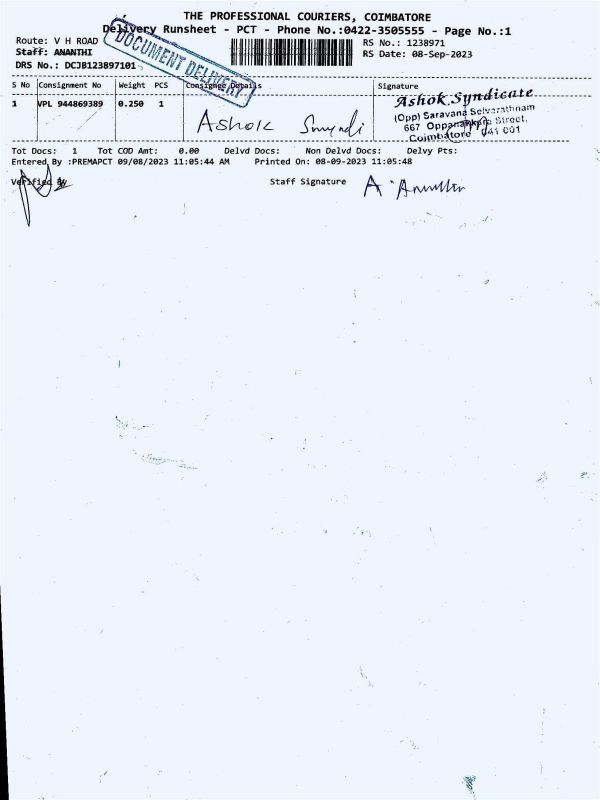 THE PROFESSIONAL COURIERS, COIMBATORE
Delivery Runsheet - PCT - Phone No.:0422-3505555 - Page No.:1
Route: V H ROAD
RS No.: 1238971
Staff: ANANTHI
RS Date: 08-Sep-2023
DRS No.: DCJB123897101
DOCUMENT DELIVERY
S No Consignment No Weight PCS Consignee Details Signature
1 VPL 944869389 0.250 1
Ashok
Ashok Syndicate
(Opp) Saravana Selvarathnam
667 Oppanakkara Street,
Coimbatore 641 001
Tot Docs: 1 Tot COD Amt: 0.00 Delvd Docs: Non Delvd Docs: Delvy Pts:
Entered By :PREMAPCT 09/08/2023 11:05:44 AM Printed On: 08-09-2023 11:05:48
Verified By
Staff Signature